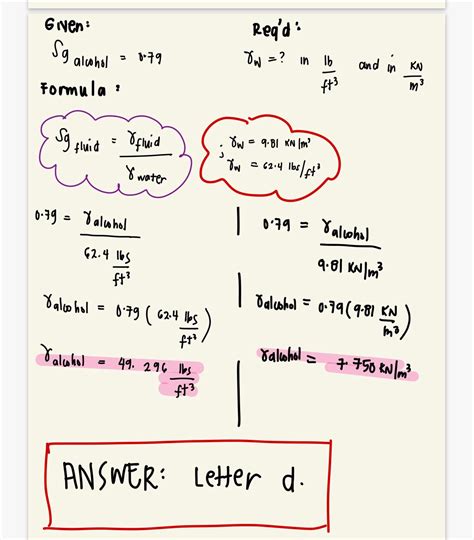 Given:
Sg alcohol = 0.79
Req'd:
γw = ? in lb/ft³ and in KN/m³
Formula:
Sg fluid = γfluid / γwater
; γw = 9.81 KN/m³
γw = 62.4 lbs/ft³
0.79 = γalcohol / 62.4 lbs/ft³
γalcohol = 0.79 (62.4 lbs/ft³)
γalcohol = 49.296 lbs/ft³
0.79 = γalcohol / 9.81 KN/m³
γalcohol = 0.79 (9.81 KN/m³)
γalcohol = 7.750 KN/m³
ANSWER: Letter d.